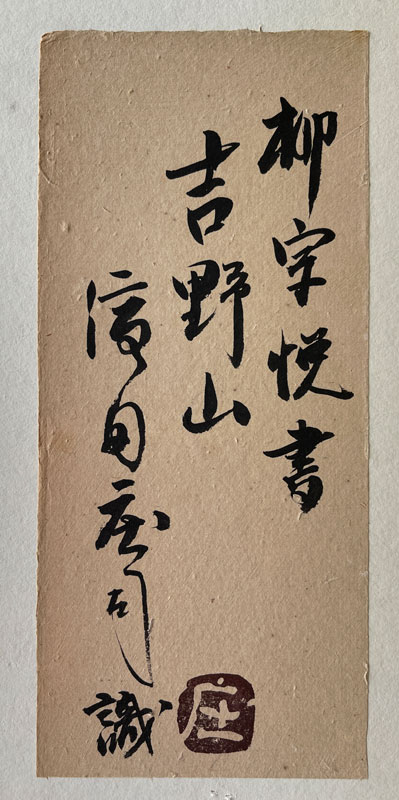 柳宗悦書
吉野山
濱田庄司識
庄